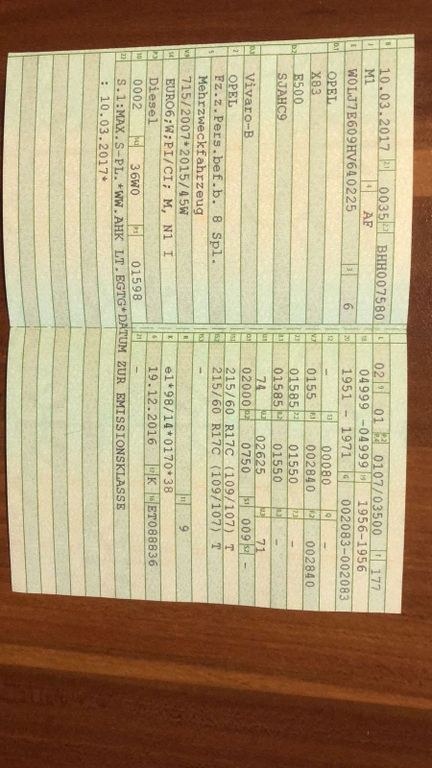 10.03.2017 0035 BHH007580
M1 AF
W0LJ7E609HV640225 6
OPEL
X83
E500
SJAHC9
Vivaro-B
OPEL
Fz.z.Pers.bef.b. 8 Spl.
Mehrzweckfahrzeug
715/2007*2015/45W
EURO6;W;PI/CI; M, N1 I
Diesel
0002 36W0 01598
02 01 0107/03500 177
04999 -04999 1956-1956
1951 - 1971 002083-002083
- 00080 -
0155 002840 002840
01585 01550 -
01585 01550 -
74 02625 71
02000 0750 009 -
215/60 R17C (109/107) T
215/60 R17C (109/107) T
- 9
e1*98/14*0170*38
19.12.2016 K ET088836
-
S.1:MAX.S-PL.*WW.AHK LT.EGTG*DATUM ZUR EMISSIONSKLASSE
: 10.03.2017*